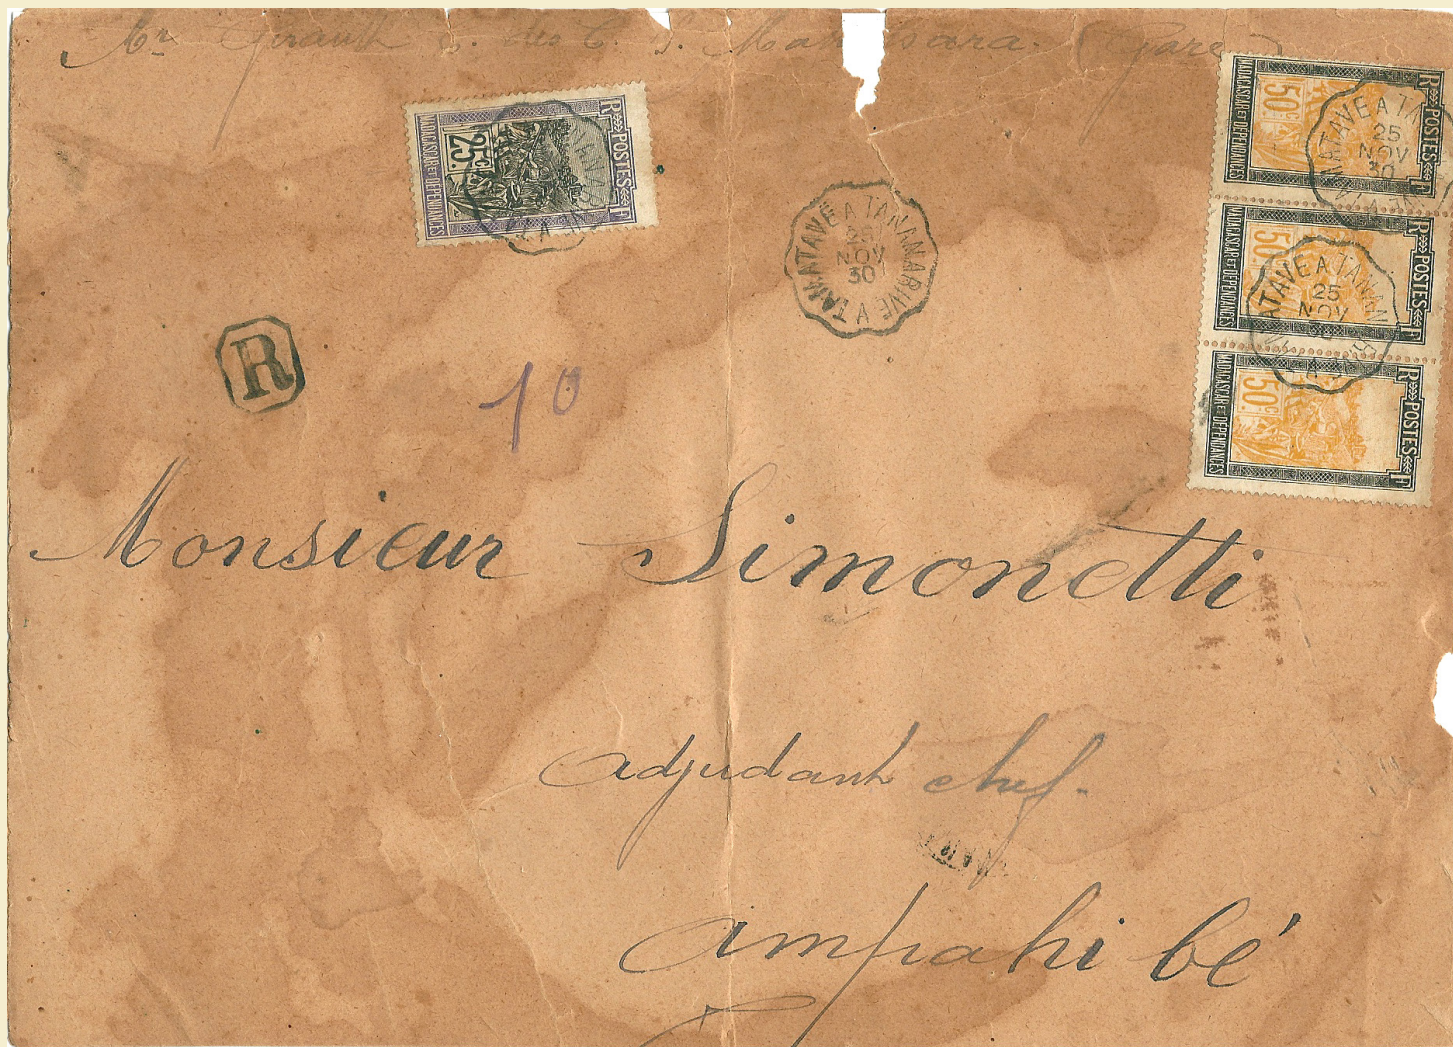 Mr Girault C. des C. G. Manjakara. (Gare)
25c
POSTES
R F
MADAGASCAR ET DÉPENDANCES
TAMATAVE A TANANARIVE A
25
NOV
30
50c
POSTES
R F
MADAGASCAR ET DÉPENDANCES
TAMATAVE A TA
25
NOV
30
50c
POSTES
R F
MADAGASCAR ET DÉPENDANCES
MATAVE A TANAN
25
NOV
50c
POSTES
R F
MADAGASCAR ET DÉPENDANCES
R
10
Monsieur Simonetti
adjudant chef.
Ampahi bé